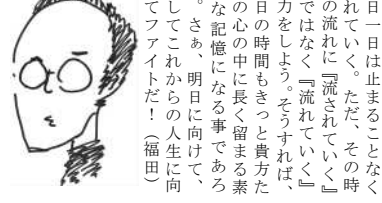 日一日は止まることなく
れていく。ただ、その時
の流れに『流されていく』
ではなく『流れていく』
力をしよう。そうすれば、
日の時間もきっと貴方た
の心の中に長く留まる素
な記憶になる事であろ
。さぁ、明日に向けて、
してこれからの人生に向
てファイトだ！（福田）